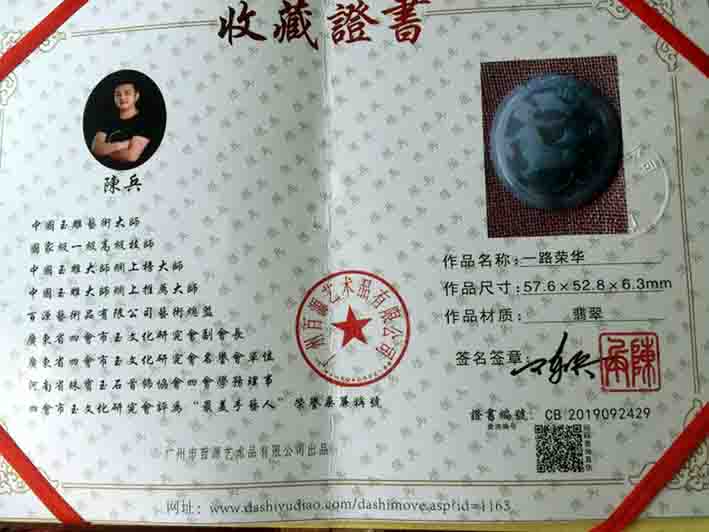 收藏證書
陳兵
中國玉雕藝術大師
國家級一級高級技師
中國玉雕大師網上榜大師
中國玉雕大師網上推廣大師
百源藝術品有限公司藝術總監
廣東省四會市玉文化研究會副會長
廣東省四會市玉文化研究會名譽會單位
河南省珠寶玉石首飾協會四會學務理事
四會市玉文化研究會評為“最美手藝人”榮譽桑蓮稱號
广州市百源艺术品有限公司出品
作品名称：一路荣华
作品尺寸：57.6×52.8×6.3mm
作品材质：翡翠
签名签章：
陳兵
广州百源艺术品有限公司
證書編號：CB 2019092429
查询编号
网址：www.dashiyudiao.com/dashimove.asp?id=1163